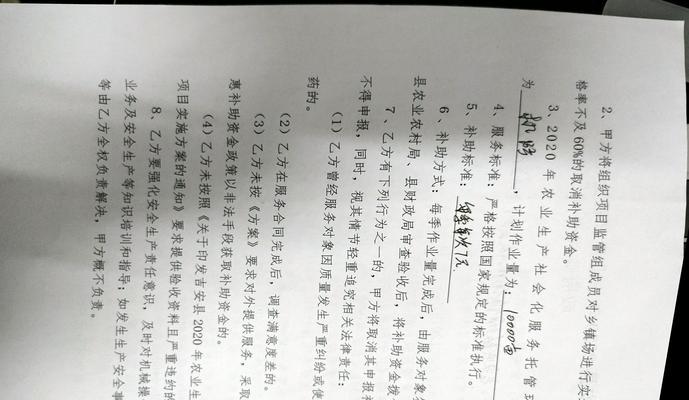 2、甲方将组织项目监管组成员对乡镇场进行实
格率不及60%的取消补助资金。
3、2020 年农业生产社会化服务托管环
为 机防 ，计划作业量为：10000亩
4、服务标准：严格按照国家规定的标准执行。
5、补助标准：每亩每次7元
6、补助方式：每季作业量完成后，由服务对象
县农业农村局、县财政局审查验收后，将补助资金拨
7、乙方有下列行为之一的，甲方将取消其申报补
不得申报，同时，视其情节轻重追究相关法律责任：
（1）乙方曾经服务对象因质量发生严重纠纷或使
药的。
（2）乙方在服务合同完成后，调查满意度差的。
（3）乙方未按《方案》要求对外提供服务，采取
惠补助资金政策以非法手段获取补助资金的。
（4）乙方未按照《关于印发吉安县 2020 年农业生
项目实施方案的通知》要求提供验收资料且严重违约的
8、乙方要强化安全生产责任意识，及时对机械操
业务及安全生产等知识培训和指导；如发生生产安全事
等由乙方全权负责解决，甲方概不负责。